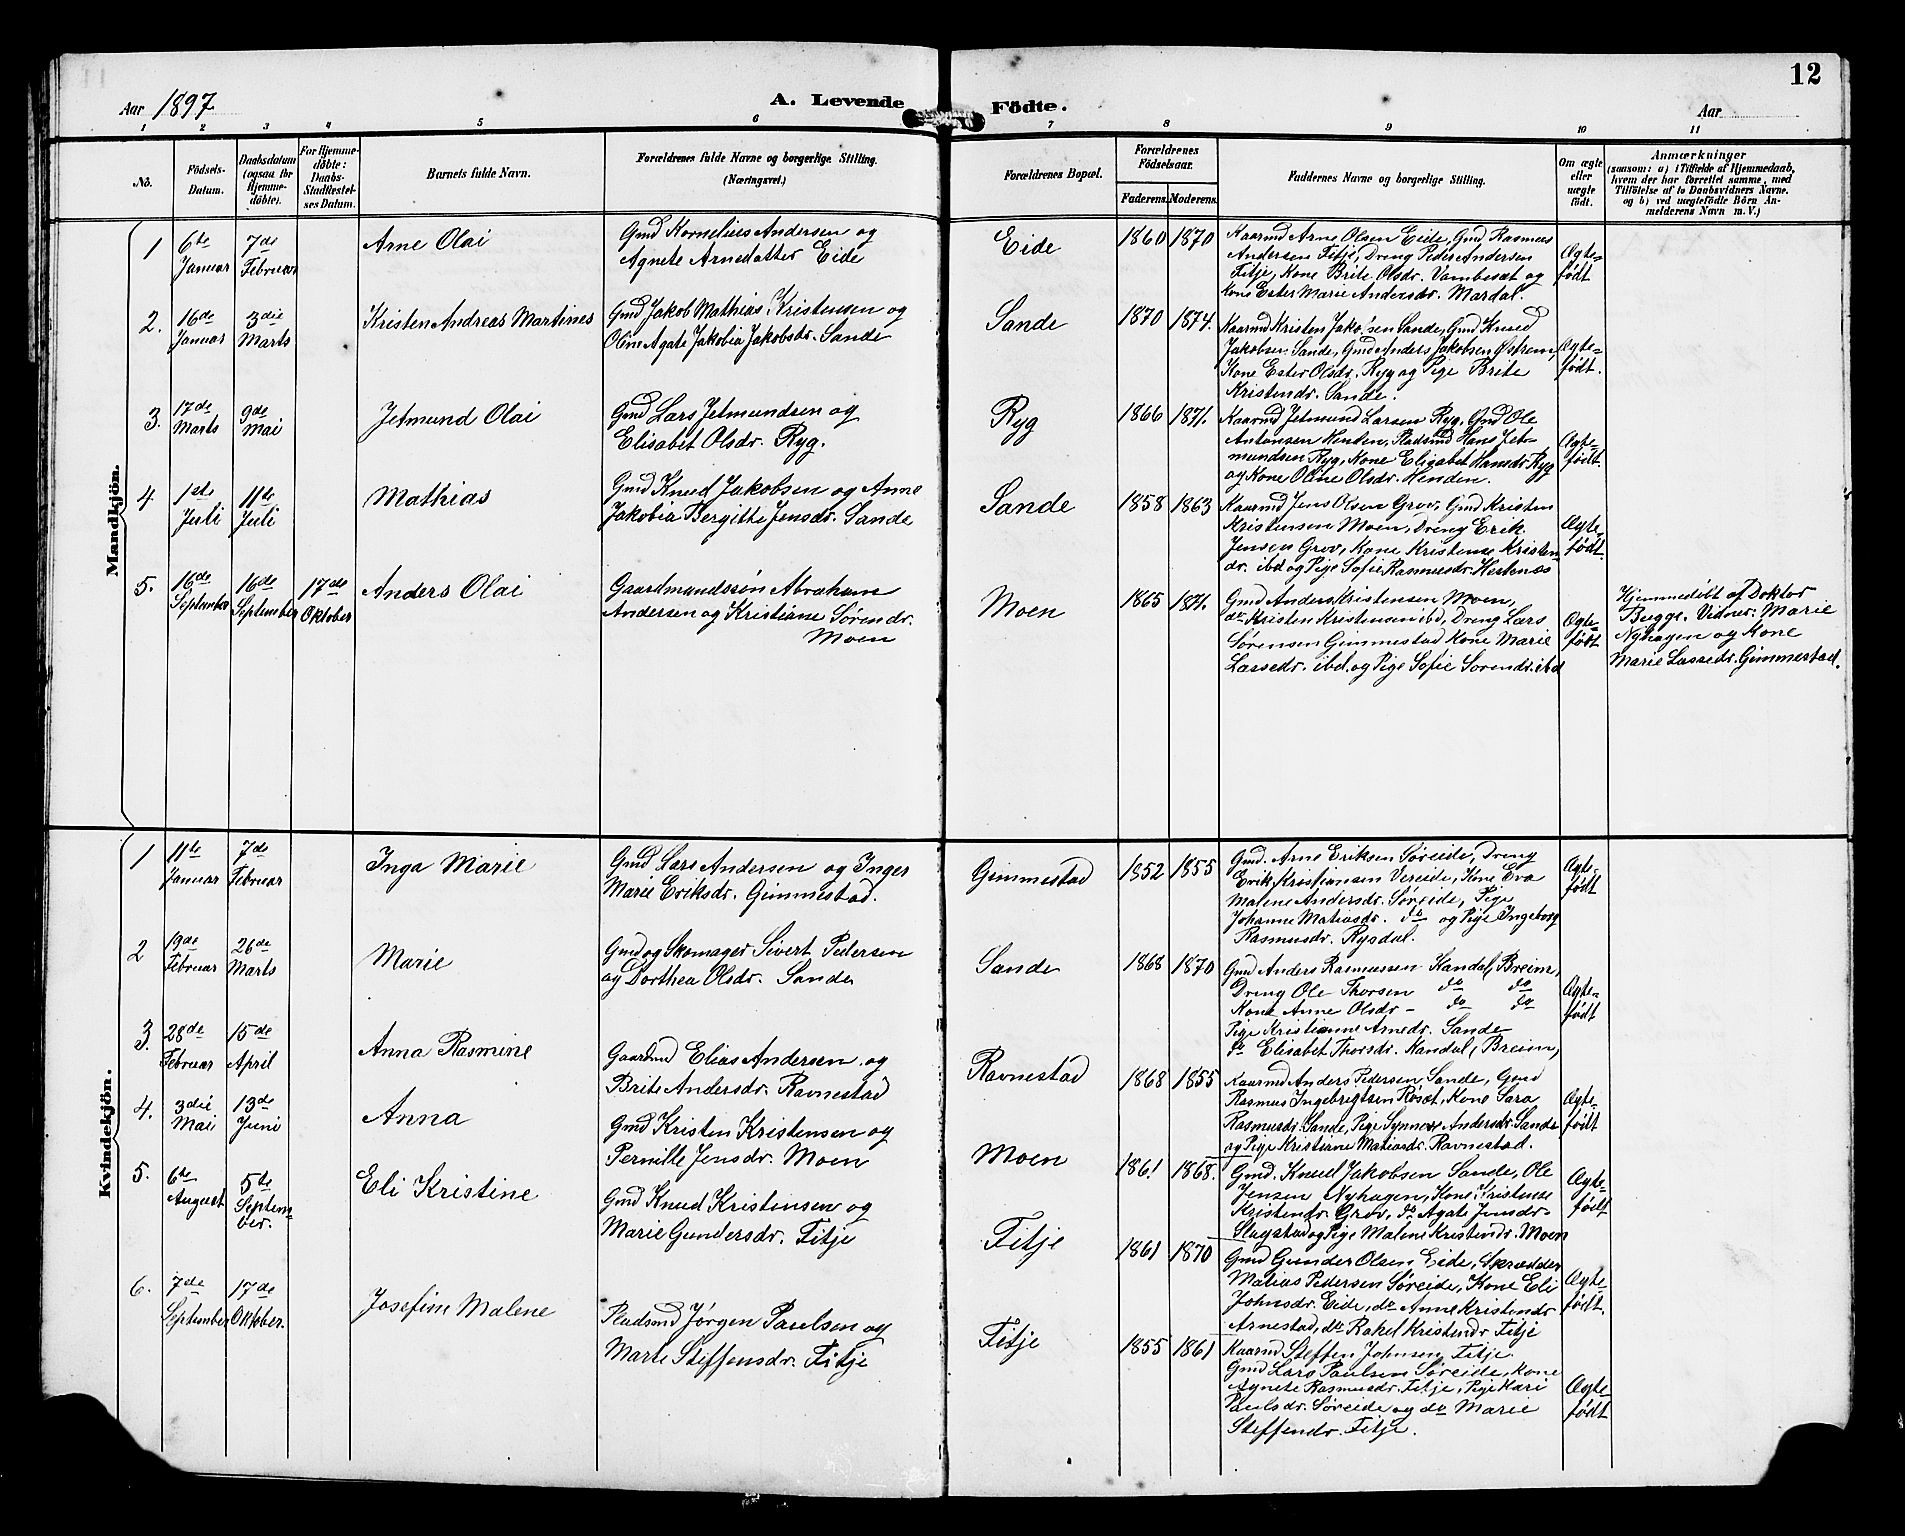 12
Aar 1897
A. Levende
Födte.
Aar
1 2 3 4 5 6 7 8 9 10 11
No.
Födsels-
Datum.
Daabsdatum
(ogsaa for
Hjemme-
döbte).
For Hjemme-
döbte:
Daabs-
Stadfæstel-
ses Datum.
Barnets fulde Navn.
Forældrenes fulde Navne og borgerlige Stilling.
(Næringsvei.)
Forældrenes Bopæl.
Forældrenes
Födselsaar.
Faderens. Moderens.
Faddernes Navne og borgerlige Stilling.
Om ægte
eller
uægte
født.
Anmærkninger
(saasom: a) i Tilfælde af Hjemmedaab,
hvem der har forrettet samme, med
Tilföielse af to Daabsvidners Navne,
og b) ved uægtefödte Börn An-
melderens Navn m. V.)
Mandkjön.
1
6te
Januar
7de
Februar
Arne Olai
Gmd Kornelius Andersen og
Agnete Arnedatter Eide
Eide
1860 1870
Kaarmd Arne Olsen Eide, Gmd Rasmus
Andersen Fitje, Dreng Peder Andersen
Fitje, Kone Brite Olsdr. Vambeset og
Kone Ester Marie Andersdr. Mardal.
Ægte-
født
2.
16de
Januar
3die
Marts
Kristen Andreas Martines
Gmd Jakob Mathias Kristensen og
Oline Agate Jakobia Jakobsdr. Sande
Sande
1870 1874.
Kaarmd Kristen Jakobsen Sande, Gmd Knud
Jakobsen Sande, Gmd Anders Jakobsen Østrem,
Kone Ester Olsdr. Ryg og Pige Brite
Kristendr. Sande.
Ægte-
født.
3.
17de
Marts
9de
Mai
Jetmund Olai
Gmd Lars Jetmundsen og
Elisabet Olsdr. Ryg.
Ryg
1866 1871.
Kaarmd Jetmund Larsen Ryg, Gmd Ole
Antonsen Henden, Pladsmd Hans Jet-
mundsen Ryg, Kone Elisabet Hansdr. Ryg
og Kone Oline Olsdr. Henden.
Ægte-
født.
4
1ste
Juli
11te
Juli
Mathias
Gmd Knud Jakobsen og Anne
Jakobia Bergitte Jensdr. Sande
Sande
1858 1863
Kaarmd Jens Olsen Grov, Gmd Kristen
Kristensen Moen, Dreng Erik
Jensen Grov, Kone Kristense Kristen-
dr. ibd og Pige Sofie Rasmusdr. Hestenes
Ægte-
født.
5.
16de
September
16de
September
17de
Oktober
Anders Olai
Gaardmandssøn Abraham
Andersen og Kristiane Sørendr.
Moen
Moen
1865 1871.
Gmd Anders Kristensen Moen,
do Kristen Kristensen ibd, Dreng Lars
Sørensen Gimmestad Kone Marie
Lassedr. ibd. og Pige Sofie Sørendr. ibd
Ægte-
født
Hjemmedøbt af Doktor
Bugge. Vidner: Marie
Nyhagen og Kone
Marie Lassedr. Gimmestad.
Kvindekjön.
1
11te
Januar
7de
Februar
Inga Marie
Gmd Lars Andersen og Inger
Marie Eriksdr. Gimmestad.
Gimmestad
1852 1855
Gmd. Arne Eriksen Søreide, Dreng
Erik Kristiansen Vereide, Kone Eva
Malene Andersdr. Søreide, Pige
Johanne Matiasdr. do og Pige Ingeborg
Rasmusdr. Rysdal.
Ægte-
født
2
19de
Februar
26de
Marts
Marie
Gmd og Skomager Sivert Pedersen
og Dorthea Olsdr. Sande
Sande
1868 1870
Gmd Anders Rasmussen Kandal, Breim,
Dreng Ole Thorsen do do
Kone Anne Olsdr - do do
Pige Kristianne Arnedr. Sande
do Elisabet Thorsdr. Kandal, Breim,
Ægte-
født
3.
28de
Februar
15de
April
Anna Rasmine
Gaardmd Elias Andersen og
Brite Andersdr. Ravnestad
Ravnestad
1868 1855
Kaarmd Anders Pedersen Sande, Gmd
Rasmus Ingebrigtsen Røset, Kone Sara
Rasmusdr. Sande, Pige Synneve Andersdr. Sande
og Pige Kristiane Matiasdr. Ravnestad.
Ægte-
født
4.
3die
Mai
13de
Juni
Anna
Gmd Kristen Kristensen og
Pernille Jensdr. Moen
Moen
1861 1868.
Gmd. Knud Jakobsen Sande, Ole
Jensen Nyhagen, Kone Kristense
Kristendr. Grov, do Agate Jensdr.
Slagstad og Pige Malene Kristendr. Moen
Ægte-
født
5.
6te
August
5te
Septem-
ber.
Eli Kristine
Gmd Knud Kristensen og
Marie Gundersdr. Fitje
Fitje
1861 1870
Gmd Gunder Olsen Eide, Skrædder
Matias Pedersen Søreide, Kone Eli
Johnsdr. Eide, do Anne Kristendr
Arnestad, do Rakel Kristendr Fitje
Ægte-
født.
6.
7de
September
17de
Oktober.
Josefine Malene
Pladsmd Jørgen Paulsen og
Marte Steffensdr. Fitje
Fitje
1855 1861
Kaarmd Steffen Johnsen Fitje.
Gmd Lars Paulsen Søreide, Kone
Agnete Rasmusdr. Fitje, Pige Kari
Paulsdr. Søreide og do Marie
Steffendr. Fitje.
Ægte-
født